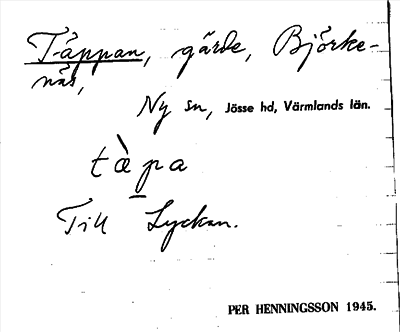 Täppan, gärde, Björke-
näs,
Ny sn, Jösse hd, Värmlands län.
tὰpa
Till Lyckan.
PER HENNINGSSON 1945.